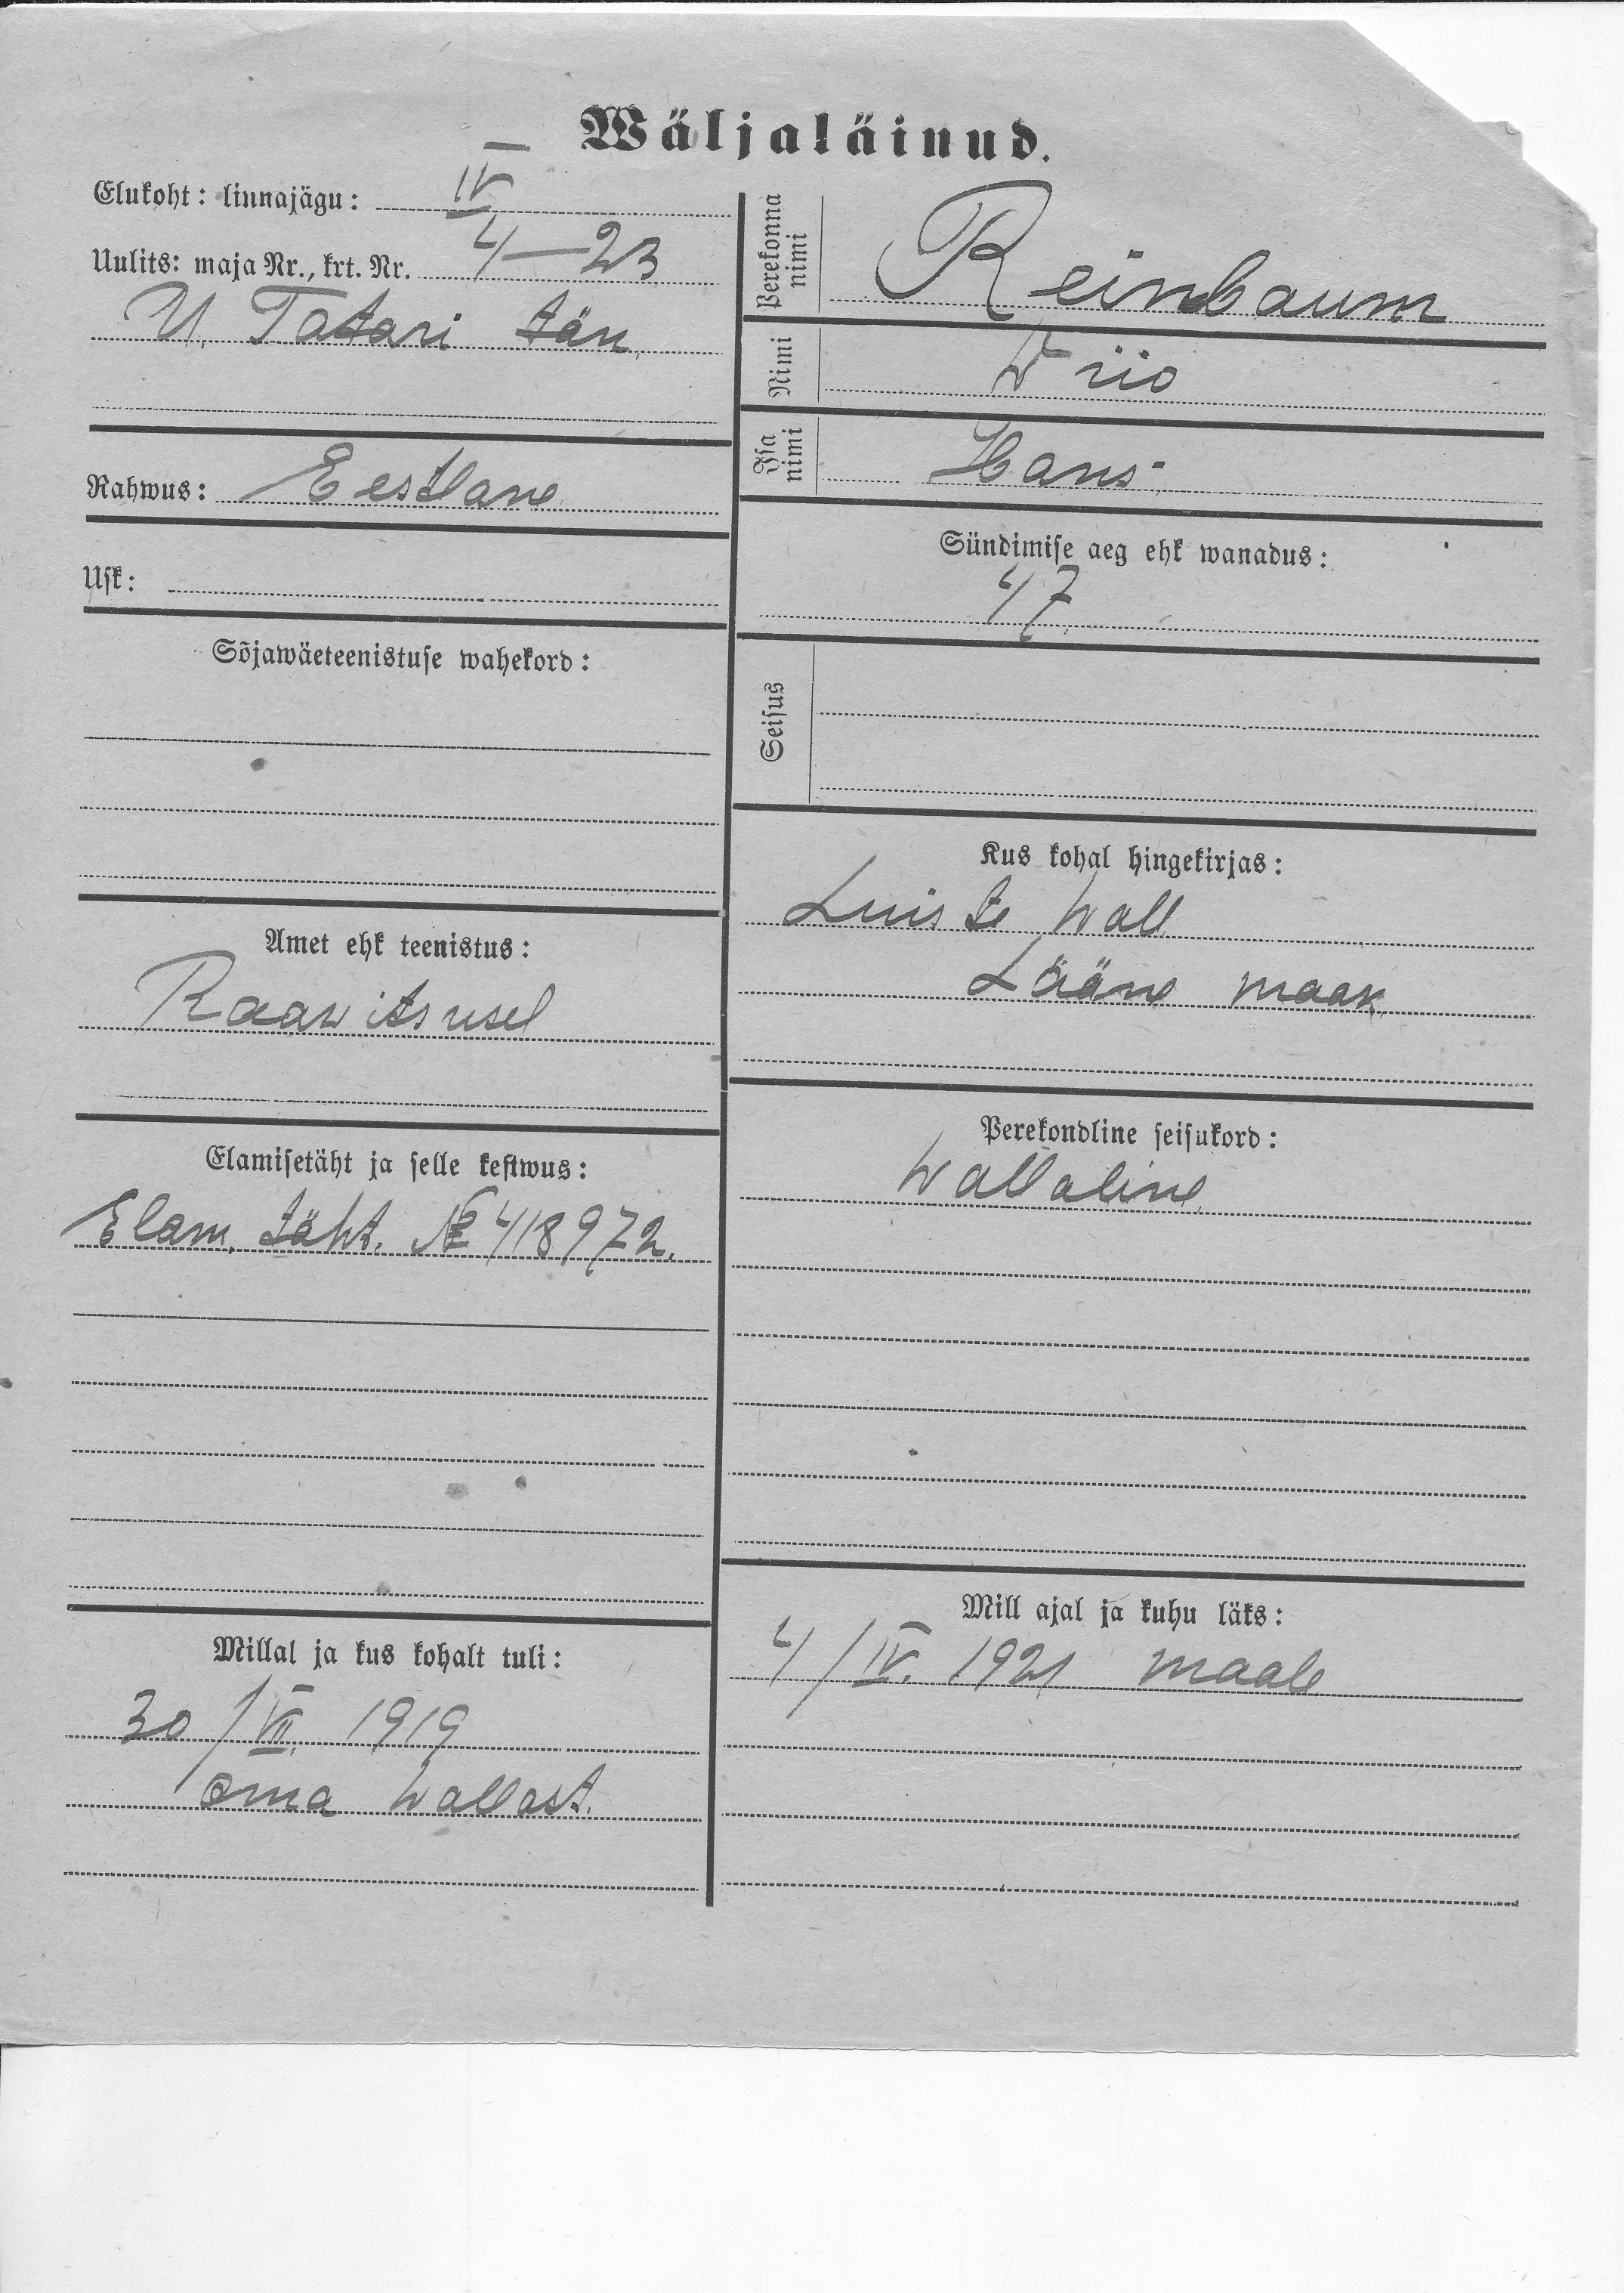 Wäljaläinud.
Elukoht: linnajägu: IV
Uulits: maja Nr., krt. Nr. 4—23
U. Tatari tän.
Rahwus: Eestlane
Usk:
Sõjawäeteenistuse wahekord:
Amet ehk teenistus:
Raawitsusel
Elamisetäht ja selle kestwus:
Elam. täht. № 418972.
Millal ja kus kohalt tuli:
30/VII. 1919
oma wallast.
Perekonna nimi Reinbaum
Nimi Wiio
Isa nimi Hans
Sündimise aeg ehk wanadus:
47.
Seisus
Kus kohal hingekirjas:
Luiste wall
Lääne maak.
Perekondline seisukord:
Wallaline
Mill ajal ja kuhu läks:
4/IV. 1921 maale